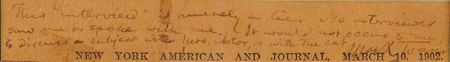 This "interview" is merely a lie. No interviewer
saw me or spoke with me. It would not occur to me
to discuss a subject with Mrs. Astor, or with the cat.
Mark Twain
NEW YORK AMERICAN AND JOURNAL, MARCH 10, 1902.